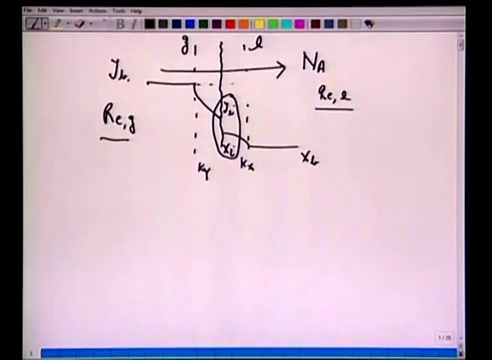 File Edit View Insert Actions Tools Help
g, , l
y_b. N_A
Re,g Re,l
y_i
x_i x_b
k_y k_x
1/25